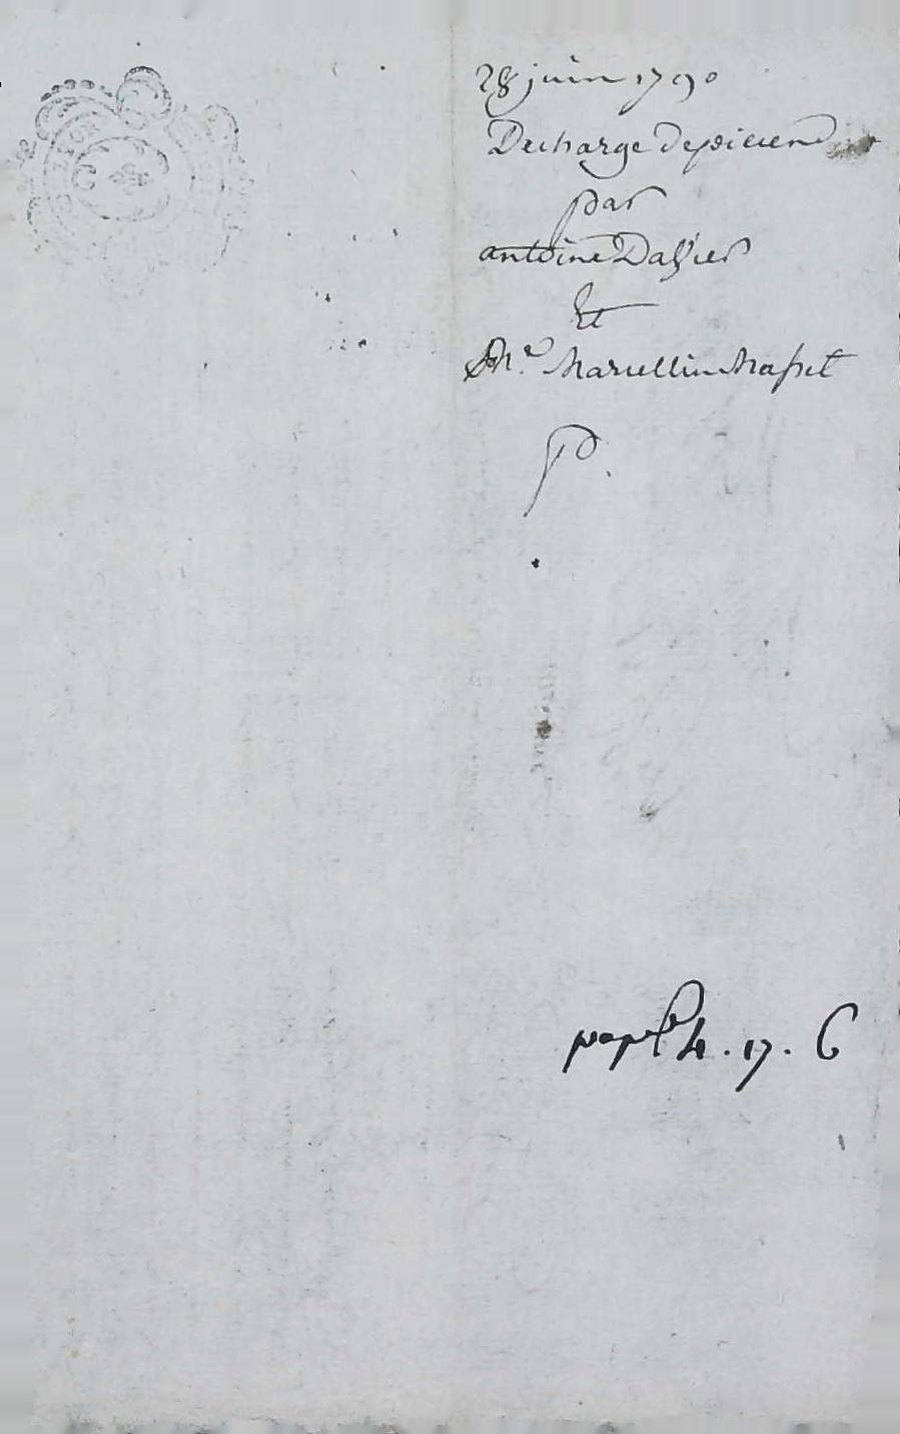 28 juin 1790
Decharge de pieces
par
antoine Dalzier
Et
Me. Marcellin
P.
4. 17. 6